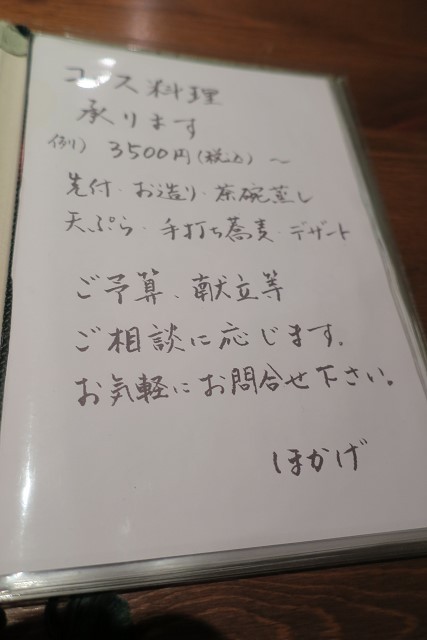 コース料理
承ります
例) 3500円(税込) ～
先付・お造り・茶碗蒸し
天ぷら・手打ち蕎麦・デザート
ご予算、献立等
ご相談に応じます。
お気軽にお問合せ下さい。
ほかげ